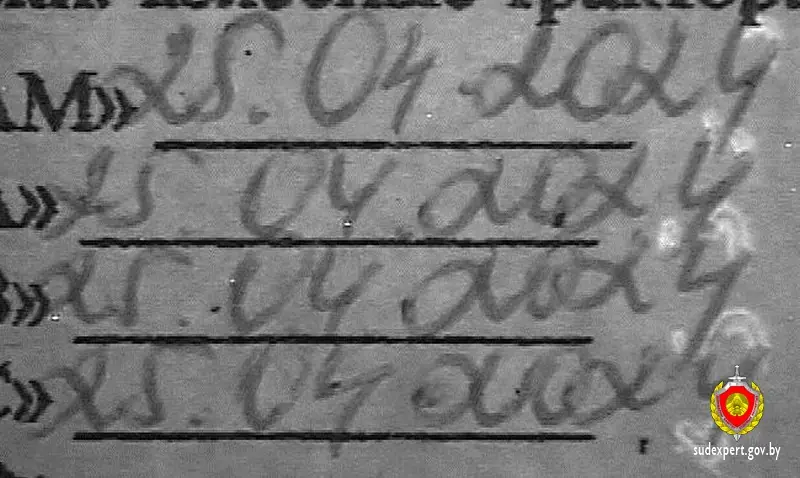 АМ» 25.04.2024
» 25.04.2024
» 25.04.2024
» 25.04.2024
sudexpert.gov.by